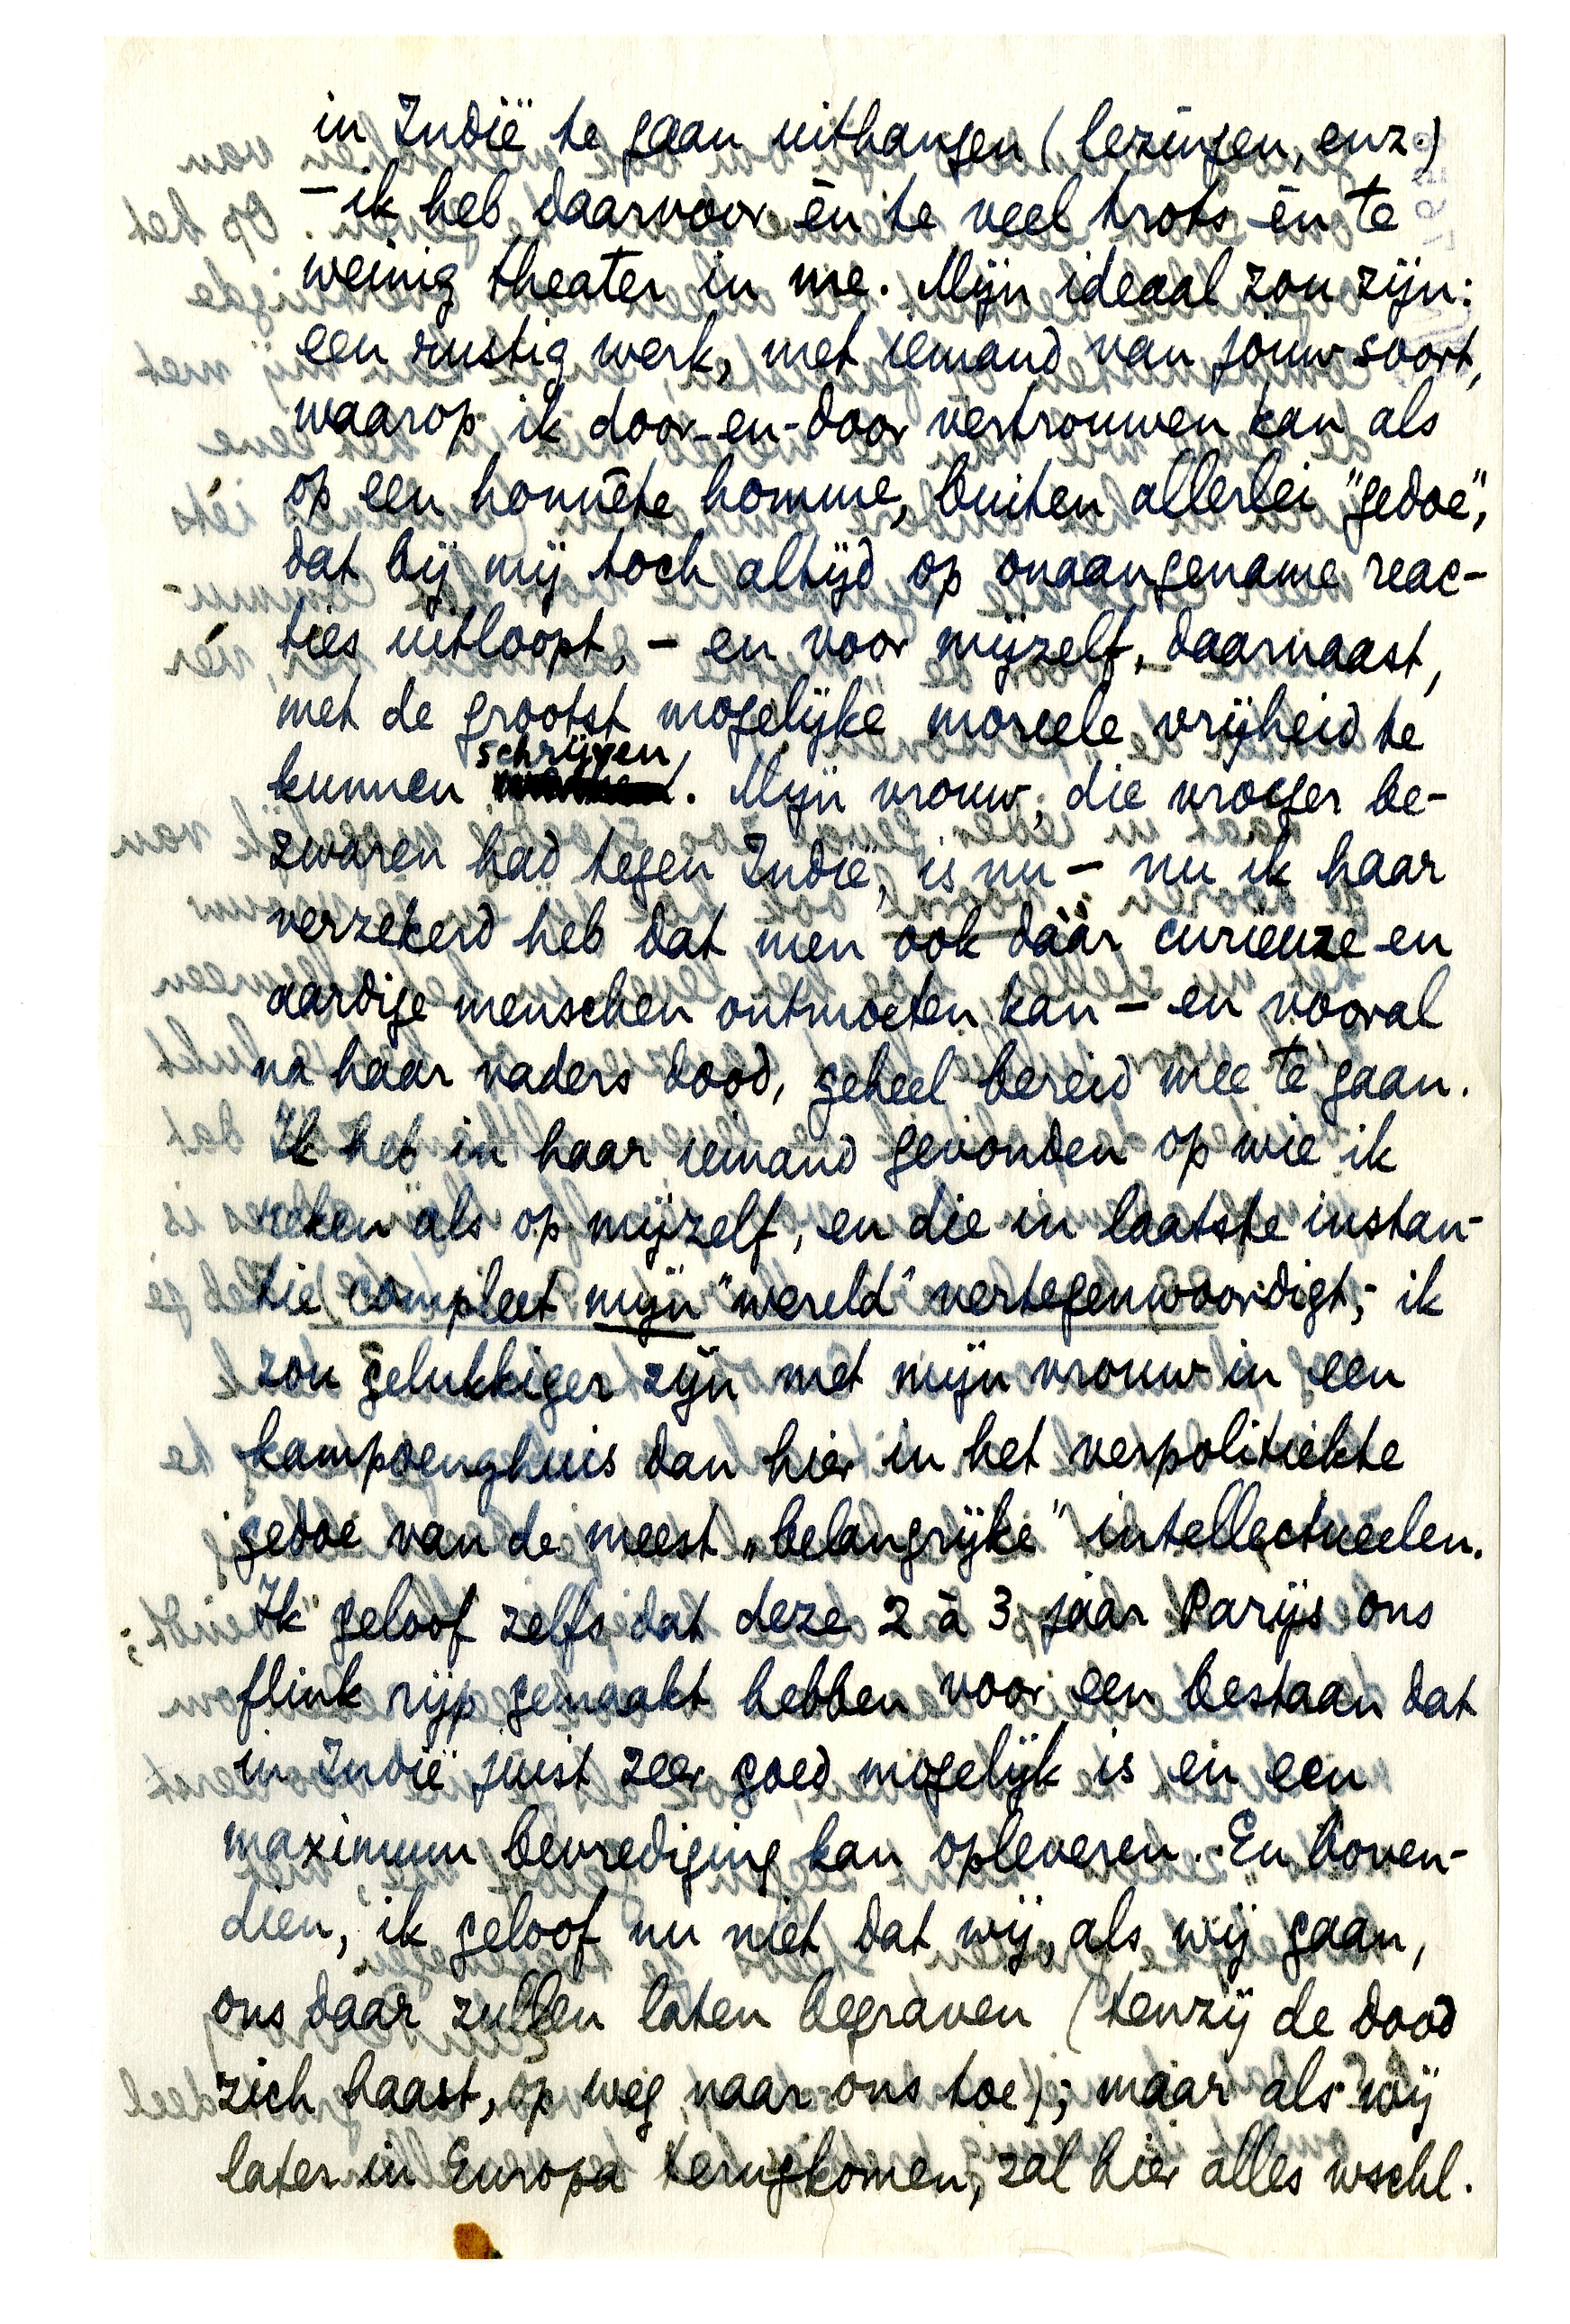 in Indië te gaan uithangen (lezingen, enz.)
– ik heb daarvoor èn te veel trots èn te
weinig theater in me. Mijn ideaal zou zijn:
een rustig werk, met iemand van jouw soort,
waarop ik door-en-door vertrouwen kan als
op een honnête homme, buiten allerlei "gedoe",
dat bij mij toch altijd op onaangename reac-
ties uitloopt, – en voor mijzelf, daarnaast,
met de grootst mogelijke moreele vrijheid te
kunnen schrijven. Mijn vrouw, die vroeger be-
zwaren had tegen Indië, is nu – nu ik haar
verzekerd heb dat men ook dààr curieuze en
aardige menschen ontmoeten kan – en vooral
na haar vaders dood, geheel bereid mee te gaan.
Ik heb in haar iemand gevonden op wie ik
reken als op mijzelf, en die in laatste instan-
tie compleet mijn "wereld" vertegenwoordigt; ik
zou gelukkiger zijn met mijn vrouw in een
kampoenghuis dan hier in het verpolitiekte
gedoe van de meest „belangrijke" intellectueelen.
Ik geloof zelfs dat deze 2 à 3 jaar Parijs ons
flink rijp gemaakt hebben voor een bestaan dat
in Indië juist zeer goed mogelijk is en een
maximum bevrediging kan opleveren. En boven-
dien, ik geloof nu niet dat wij, als wij gaan,
ons daar zullen laten begraven (tenzij de dood
zich haast, op weg naar ons toe); maar als wij
later in Europa terugkomen, zal hier alles wschl.